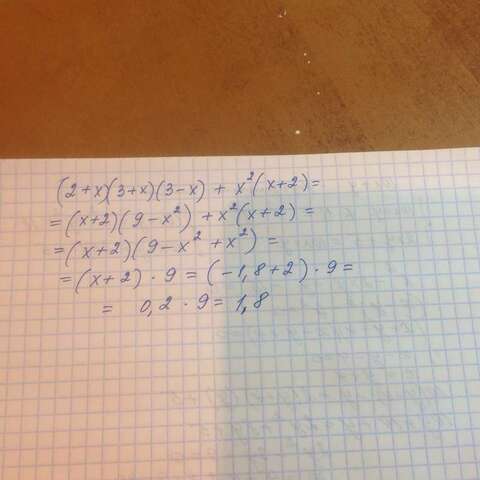 (2+x)(3+x)(3-x) + x²(x+2)=
=(x+2)(9-x²) + x²(x+2) =
=(x+2)(9-x² +x²) =
=(x+2) · 9 = (-1,8+2) · 9=
= 0,2 · 9= 1,8